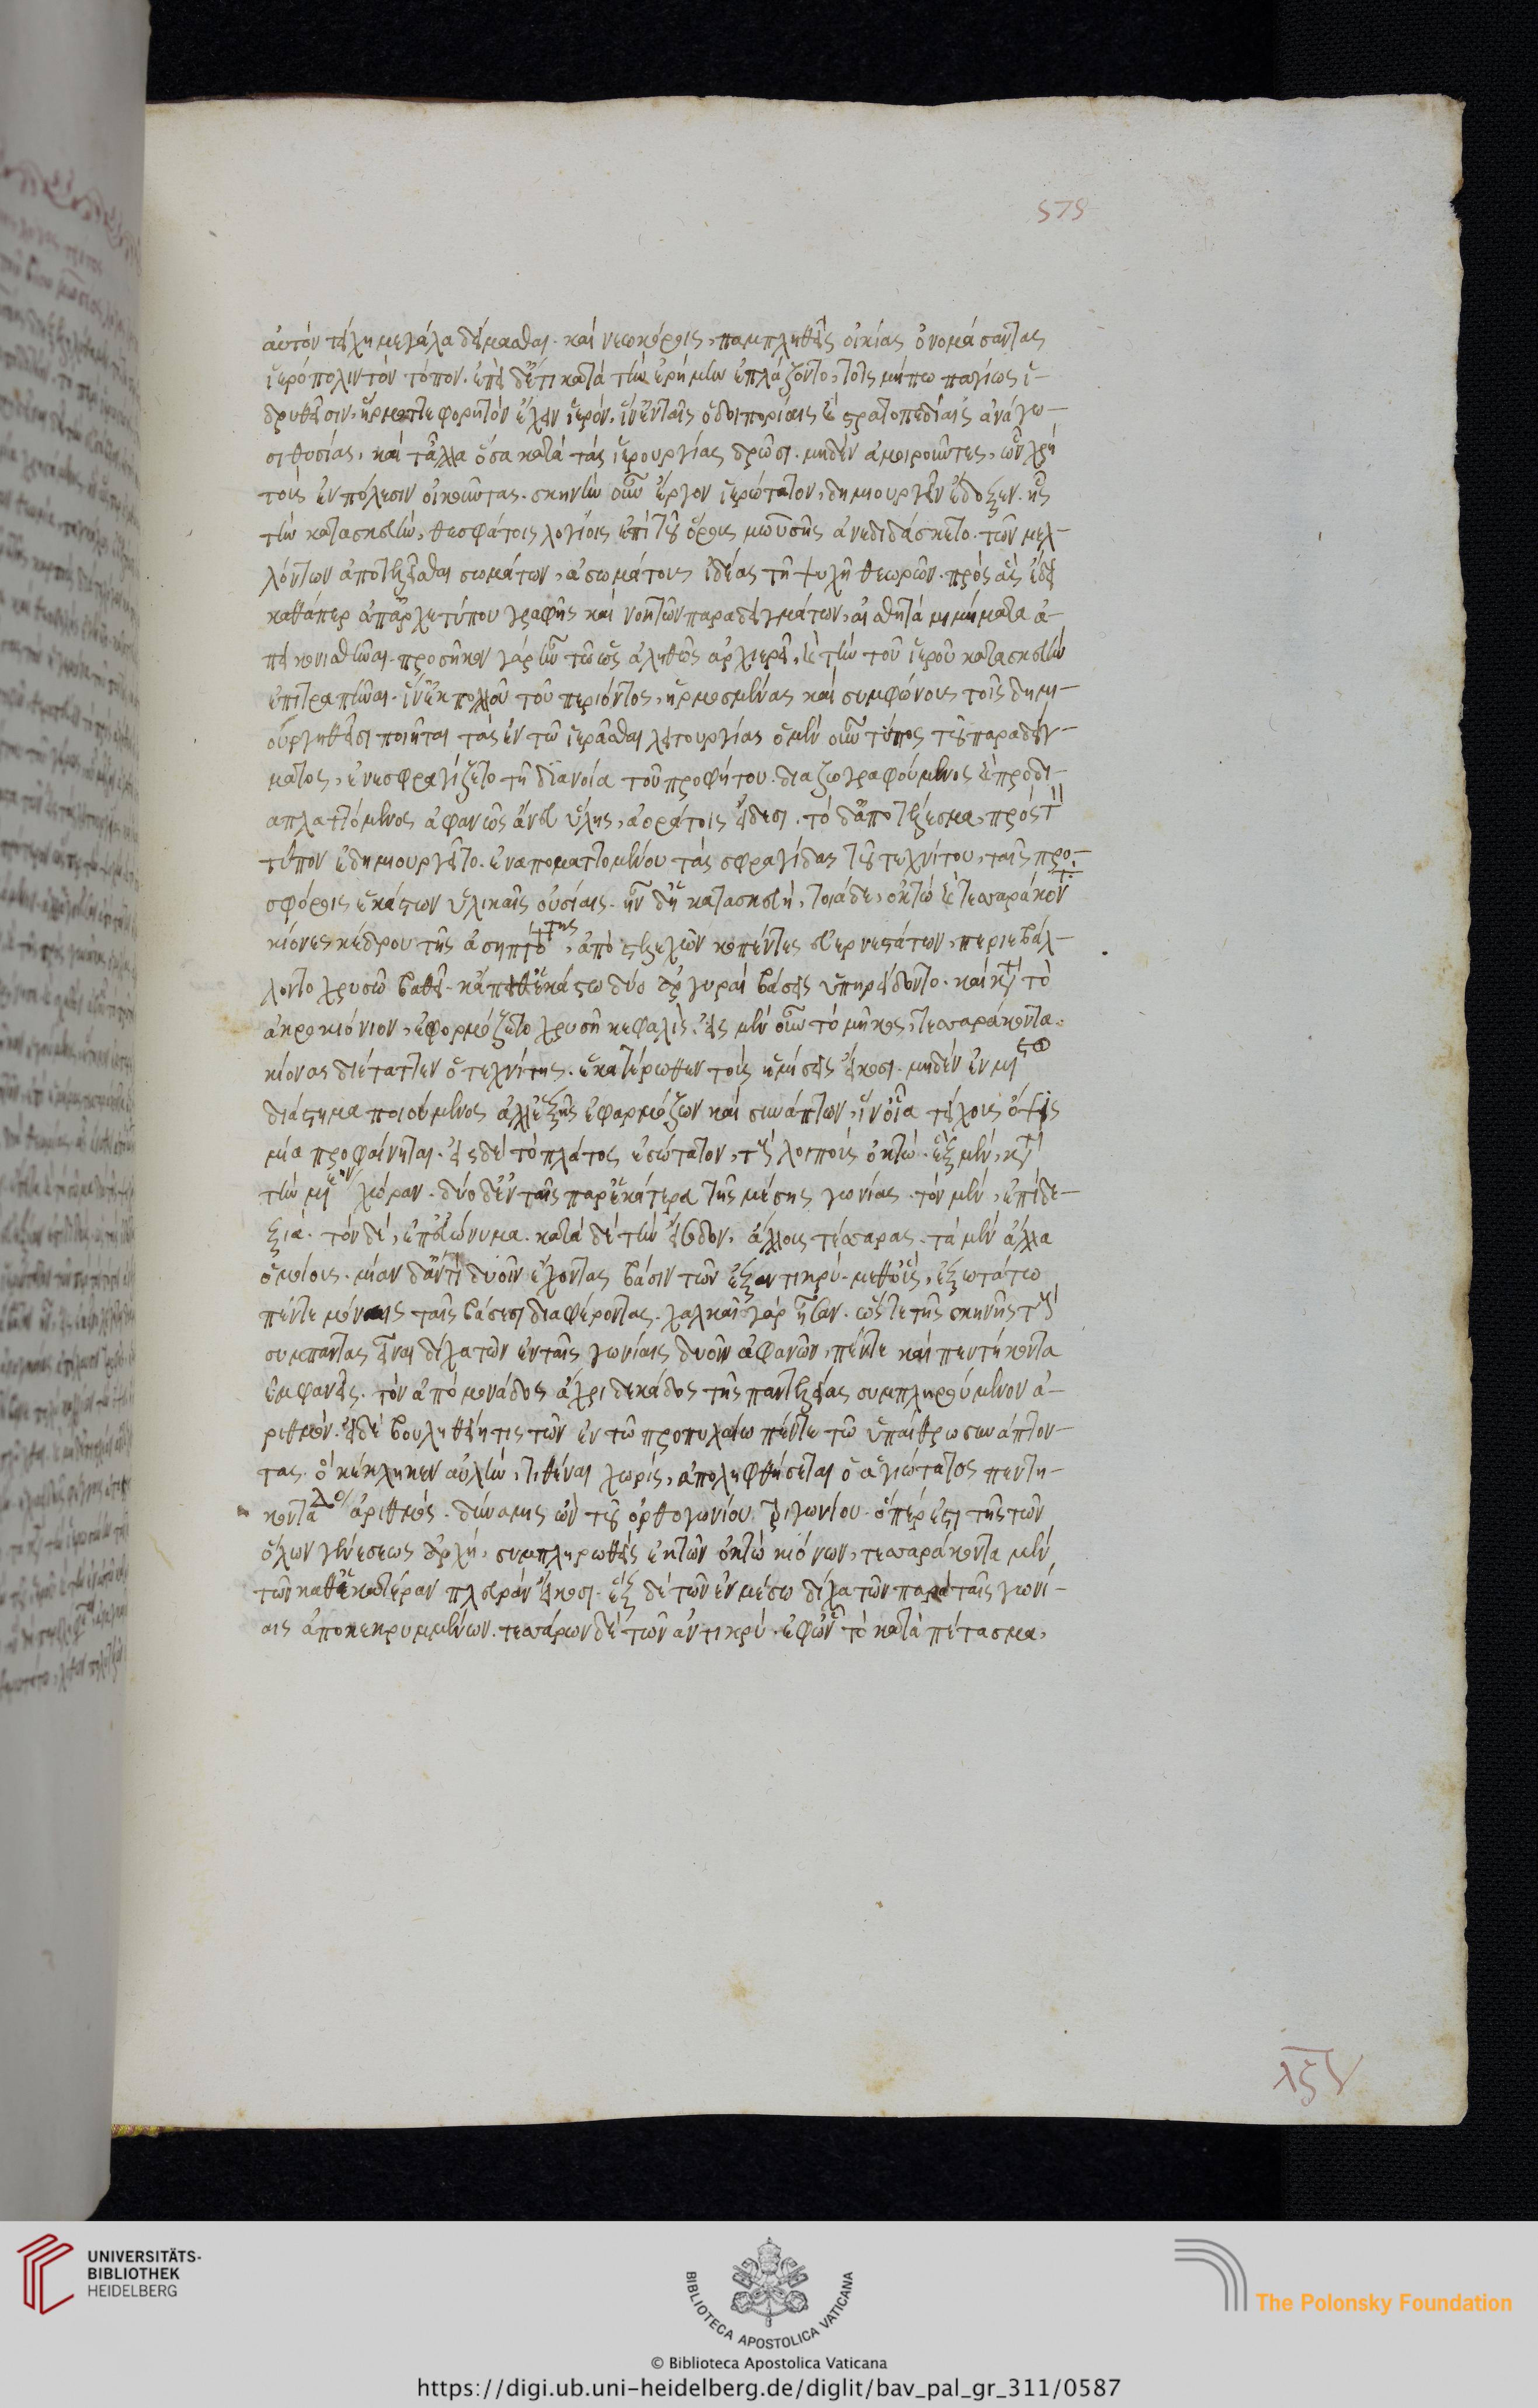 579
αὐτὸν τείχη μεγάλα δείμασθαι· καὶ νεωκόροις, παμπληθεῖς οἰκίας ὀνομάσαντας
ἱερόπολιν τὸν τόπον. ἐπεὶ δ' ἔτι κατὰ τὴν ἐρήμην ἐπλάζοντο, τοῖς μήπω παγίως ἱ-
δρυθεῖσιν, ἥρμοττε φορητὸν ἔχειν ἱερόν, ἵν' ἐν ταῖς ὁδοιπορίαις καὶ στρατοπεδίαις ἀνάγω-
σι θυσίας, καὶ τἄλλα ὅσα κατὰ τὰς ἱερουργίας δρῶσι. μηδὲν ἀμοιροῦντες, ὧν χρὴ
τοὺς ἐν πόλεσιν οἰκοῦντας. σκηνὴν οὖν ἔργον ἱερώτατον, δημιουργεῖν ἔδοξεν. ἧς
τὴν κατασκευὴν, θεσφάτοις λογίοις ἐπὶ τοῦ ὄρους μωυσῆς ἀνεδιδάσκετο. τῶν μελ-
λόντων ἀποτελεῖσθαι σωμάτων, ἀσωμάτους ἰδέας τῇ ψυχῇ θεωρῶν. πρὸς ἃς ἔδει
καθάπερ ἀπ' ἀρχετύπου γραφῆς καὶ νοητῶν παραδειγμάτων, αἰσθητὰ μιμήματα ἀ-
πεικονισθῆναι. προσῆκον γὰρ ἦν τῷ ὡς ἀληθῶς ἀρχιερεῖ, καὶ τὴν τοῦ ἱεροῦ κατασκευὴν
ἐπιτραπῆναι. ἵν' ἐκ πολλοῦ τοῦ περιόντος, ἡρμοσμένας καὶ συμφώνους τοῖς δημι-
ουργηθεῖσι ποιῆται τὰς ἐν τῷ ἱερᾶσθαι λειτουργίας ὁ μὲν οὖν τύπος τοῦ παραδείγ-
ματος, ἐνεσφραγίζετο τῇ διανοίᾳ τοῦ προφήτου. διαζωγραφούμενος καὶ προδι-
απλαττόμενος ἀφανῶς ἄνευ ὕλης, ἀοράτοις εἴδεσι. τὸ δ' ἀποτέλεσμα, πρὸς τὸν
τύπον ἐδημιουργεῖτο. ἐναποματτομένου τὰς σφραγίδας τοῦ τεχνίτου, ταῖς προ-
σφόροις ἑκάστων ὑλικαῖς οὐσίαις. ἦν δ' ἡ κατασκευὴ, τοιάδε, ὀκτὼ καὶ τεσσαράκοντα
κίονες κέδρου τῆς ἀσηπτοτάτης, ἀπὸ στελεχῶν κοπέντες εὐερνεστάτων, περιεβάλ-
λοντο χρυσῷ βαθεῖ. κἄπειθ' ἑκάστῳ δύο ἀργυραῖ βάσεις ὑπηρείδοντο. καὶ κατὰ τὸ
ἀκροκιόνιον, ἐφορμόζετο χρυσῆ κεφαλίς. εἰς μὲν οὖν τὸ μῆκος, τεσσαράκοντα
κίονας διέταττεν ὁ τεχνίτης. ἑκατέρωθεν τοὺς ἡμίσεις εἴκοσι. μηδὲν ἐν μέσῳ
διάστημα ποιούμενος ἀλλ' ἑξῆς ἐφαρμόζων καὶ συνάπτων, ἵν' οἷα τείχους ὄψις
μία προφαίνηται. εἰς δὲ τὸ πλάτος ἐσώτατον, τοὺς λοιποὺς ὀκτώ. ἓξ μὲν, κατὰ
τὴν μέσην χώραν. δύο δ' ἐν ταῖς παρ' ἑκάτερα τῆς μέσης γωνίας. τὸν μὲν, ἐπὶ δε-
ξιά. τὸν δὲ, ἐπ' εὐώνυμα. κατὰ δὲ τὴν εἴσοδον, ἄλλους τέσσαρας. τὰ μὲν ἄλλα
ὁμοίους. μίαν δ' ἀντὶ δυοῖν ἔχοντας βάσιν τῶν ἐξαντικρύ. μεθ' οὓς, ἐξωτάτω
πέντε μόναις ταῖς βάσεσι διαφέροντας. χαλκαῖ γὰρ ἦσαν. ὥστε τῆς σκηνῆς τοὺς
συμπάντας εἶναι δίχα τῶν ἐν ταῖς γωνίαις δυοῖν ἀφανῶν, πέντε καὶ πεντήκοντα
ἐμφανεῖς. τὸν ἀπὸ μονάδος ἄχρι δεκάδος τῆς παντελείας συμπληρούμενον ἀ-
ριθμόν. εἰ δὲ βουληθείη τις τῶν ἐν τῷ προπυλαίῳ πέντε τῷ ὑπαίθρῳ συνάπτον-
τας. ὃ κέκληκεν αὐλὴν, τιθέναι χωρὶς, ἀπολειφθήσεται ὁ ἁγιώτατος πεντη-
κοντάδος ἀριθμός. δύναμις ὢν τοῦ ὀρθογωνίου τριγώνου. ὅπερ ἐστὶ τῆς τῶν
ὅλων γενέσεως ἀρχή, συμπληρωθεὶς ἐκ τῶν ὀκτὼ κιόνων, τεσσαράκοντα μὲν
τῶν καθ' ἑκατέραν πλευρὰν εἴκοσι. ἓξ δὲ τῶν ἐν μέσῳ δίχα τῶν παρὰ ταῖς γωνί-
αις ἀποκεκρυμμένων. τεσσάρων δὲ τῶν ἀντικρύ. ἐφ' ὧν τὸ καταπέτασμα,
UNIVERSITÄTS-
BIBLIOTHEK
HEIDELBERG
BIBLIOTECA APOSTOLICA VATICANA
The Polonsky Foundation
© Biblioteca Apostolica Vaticana
https://digi.ub.uni-heidelberg.de/diglit/bav_pal_gr_311/0587